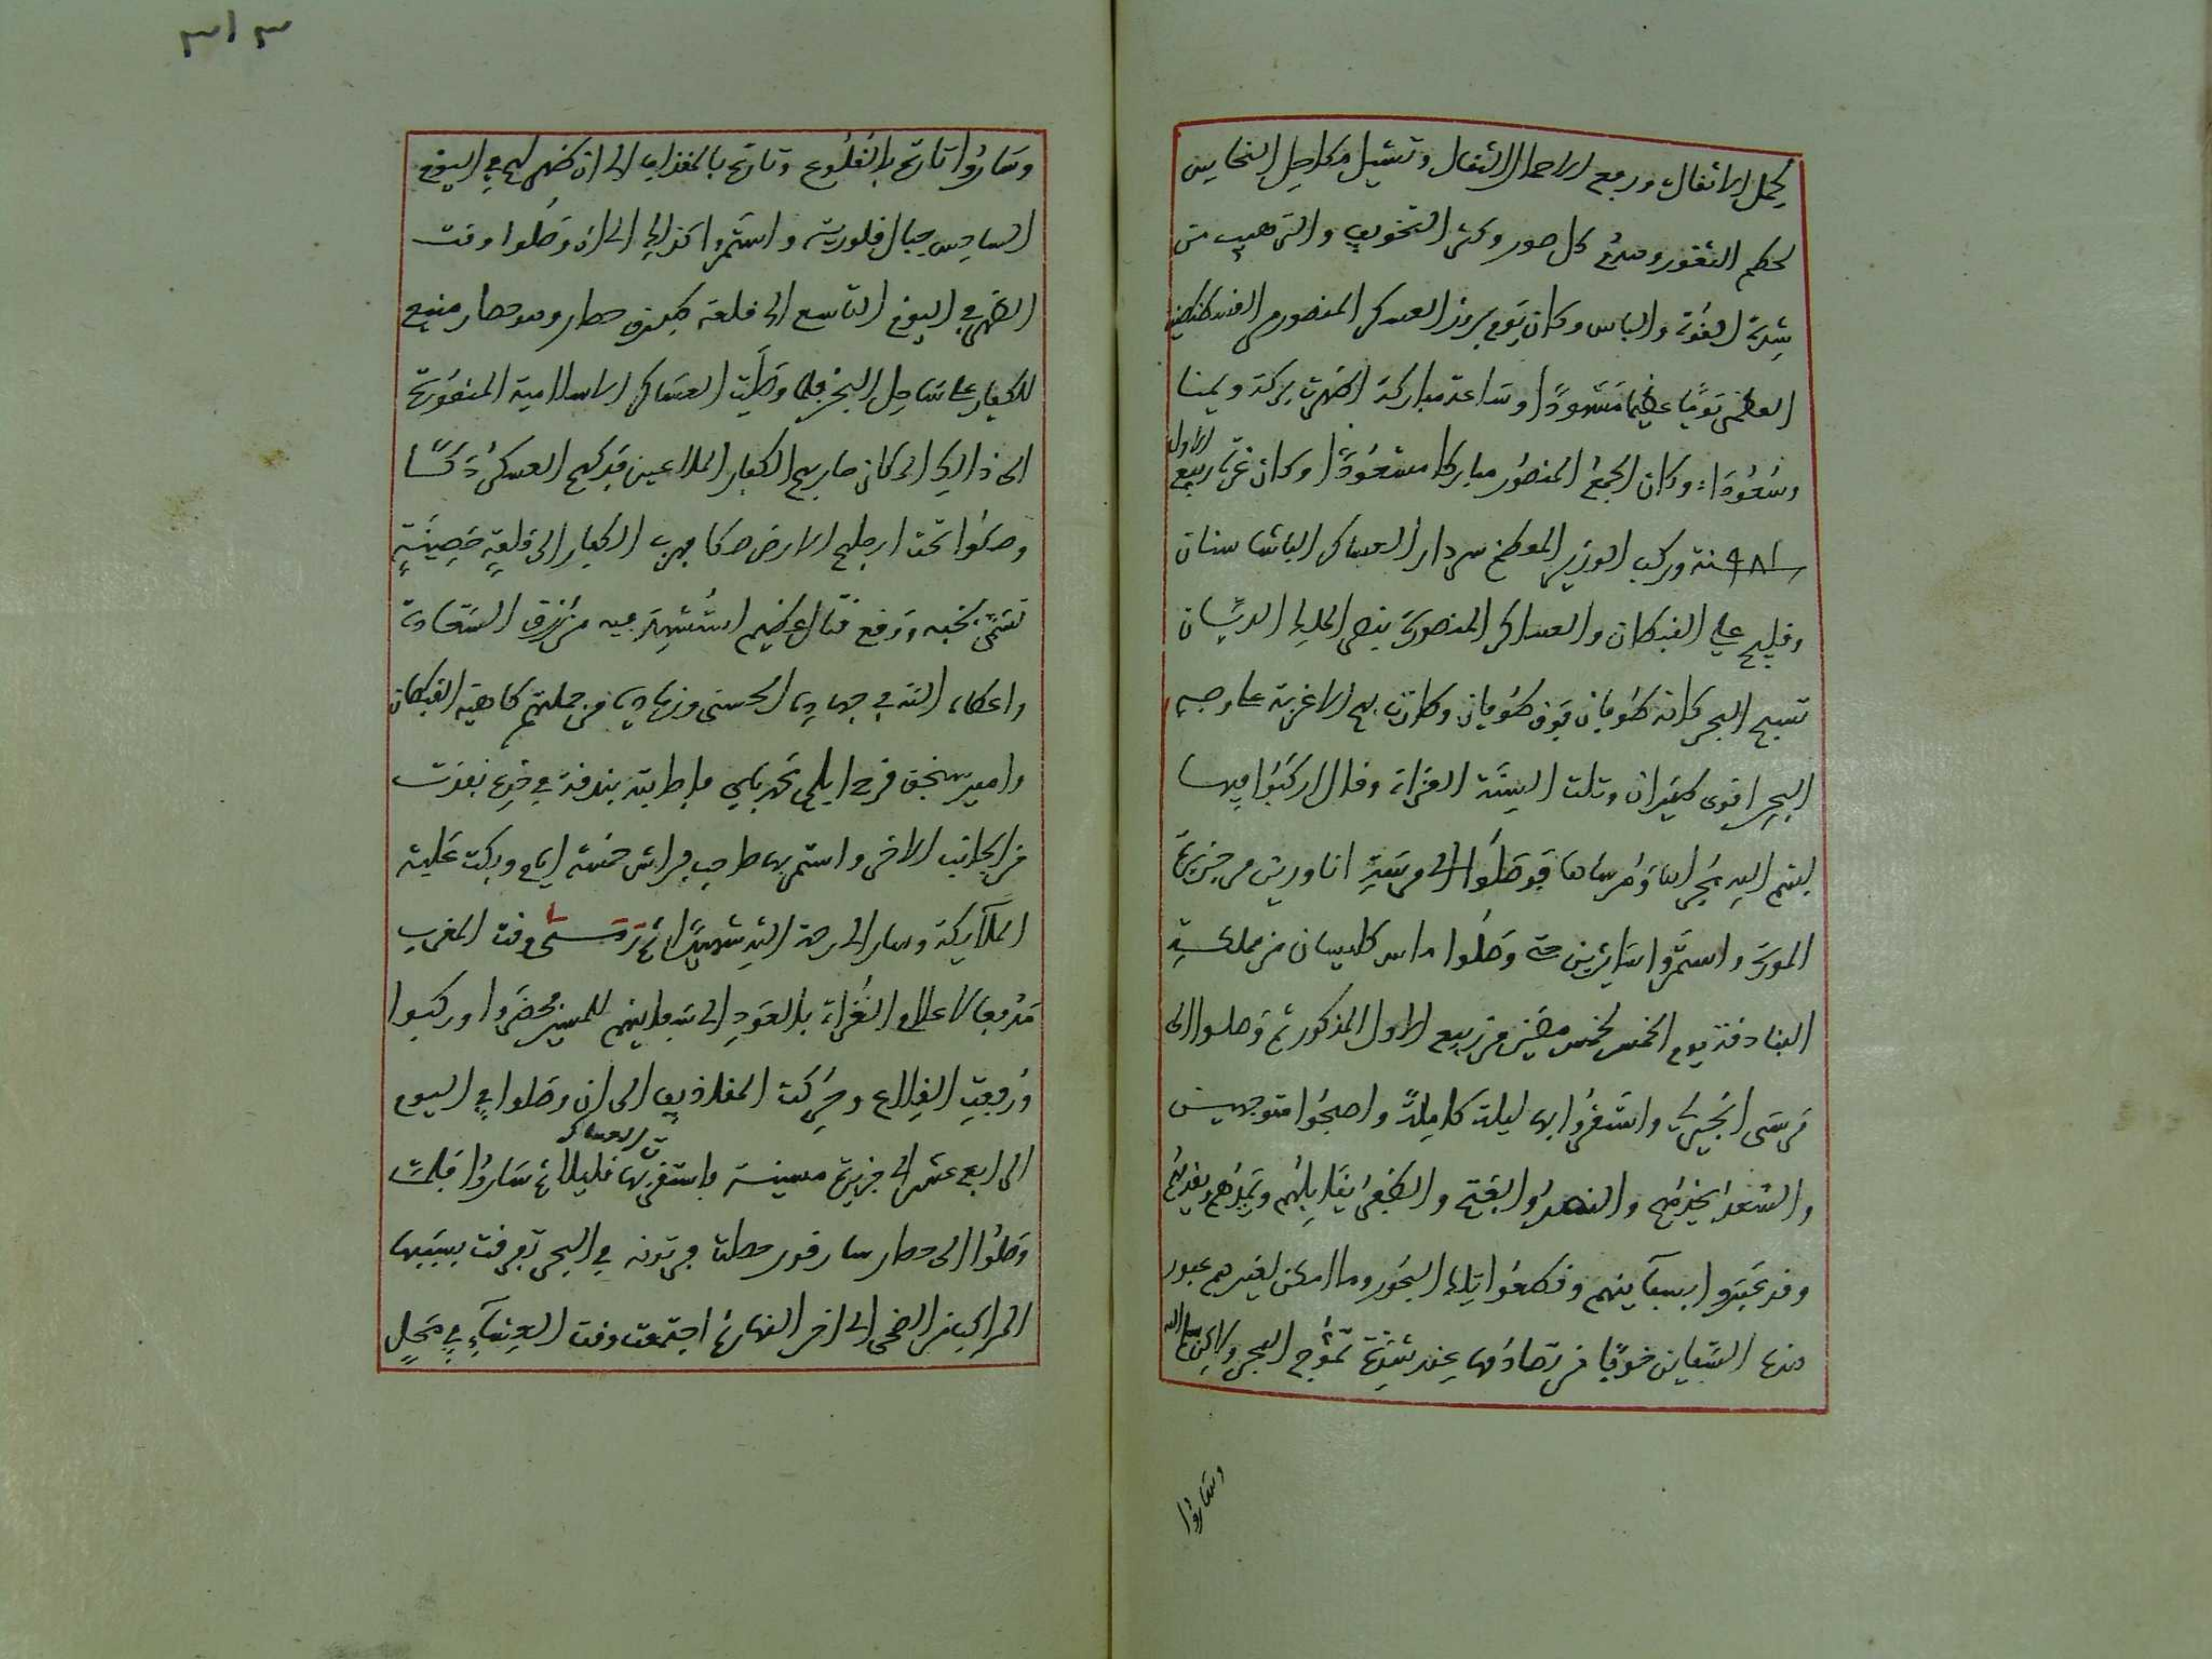 لحمل الاثقال ورفع الاحمال الثقال وتشيل مكاحل النحاس
لحكم الثغور وصدع كل صور وكثر التخويف والترهيب من
شدة القوة والباس وكان يوم بروز العسكر المنصور من القسطنطينية
العظمى يومًا عظيما مشهودًا وساعة مباركة اظهرت بركة ويمنا
وسعودا وكان الجمع المنصور مباركا مسعودًا وكان غرة ربيع الاول
سنة ٩٨١ وركب الوزير المعظم سردار العساكر الباشا سنان
وقليج علي القبطان والعساكر المنصورة بنصر الملك الديان
تسبح البحر كانه طوفان فوق طوفان وكانت بهم الاغربة على وجه
البحر اقوى طيران وتلت السنة القراة وقال اركبوا فيها
بسم الله مجراها ومرساها فوصلوا الى مرسى اناورين من جزيرة
المورة واستمروا سائرين حتى وصلوا طاس كليسان من مملكة
البنادقة يوم الخمس لخمس مضين من ربيع الاول المذكور ثم وصلوا الى
مرسى انجيرلي واستقروا بها ليلة كاملة واصبحوا متوجهين
والسعد يخدمهم والنصر والفتح والظفر يقابلهم ويمدهم ويقدمهم
وقد عبروا بسفاينهم وقطعوا تلك البحور وما امكن لغيرهم عبور
هذه السفاين خوفا من تصادمها عند شدة تموج البحر ولكن سلم الله
وساروا
٣١٣
وساروا تارة بالقلوع وتارة بالمقذاف الى ان ظهر لهم في اليوم
السادس جبال قلورية واستمروا كذلك الى ان وصلوا وقت
الظهر في اليوم التاسع الى قلعة حصار وهو حصار منيع
للكفار على ساحل البحر فلما وصلت العساكر الاسلامية المنصورة
الى ذلك المكان حاربهم الكفار الملاعين فدكهم العسكر دكًا
وصكوا تحت ارجلهم الارض صكا فهرب الكفار الى قلعة حصينة
تسمى نخبه ووقع قتال عظيم استشهد فيه من رزق السعادة
واعطاه الله في جهاده الحسنى وزيادة فمن جملتهم كاهية القبطان
وامير سنجق قره ايلي محمد باي فاصابته بندقة في فرع نفذت
من الجانب الاخر واستمر بها صاحب فراش خمسة ايام وبكت عليه
الملائكة وسار الى رحمة الله شهيدًا ثم وقت المغرب
مدفعا لاعلام الغزاة بالعود الى سفاينهم للمسير فحضروا وركبوا
ورفعت القلاع وحركت المقاذيف الى ان وصلوا في اليوم
الرابع عشر الى جزيرة مسينة فاستقرت بها العساكر قليلا ثم ساروا فلما
وصلوا الى حصار سارقور حصلت فرتونه في البحر تفرقت بسببها
المراكب من الضحى الى اخر النهار ثم اجتمعت وقت العشاء في محل